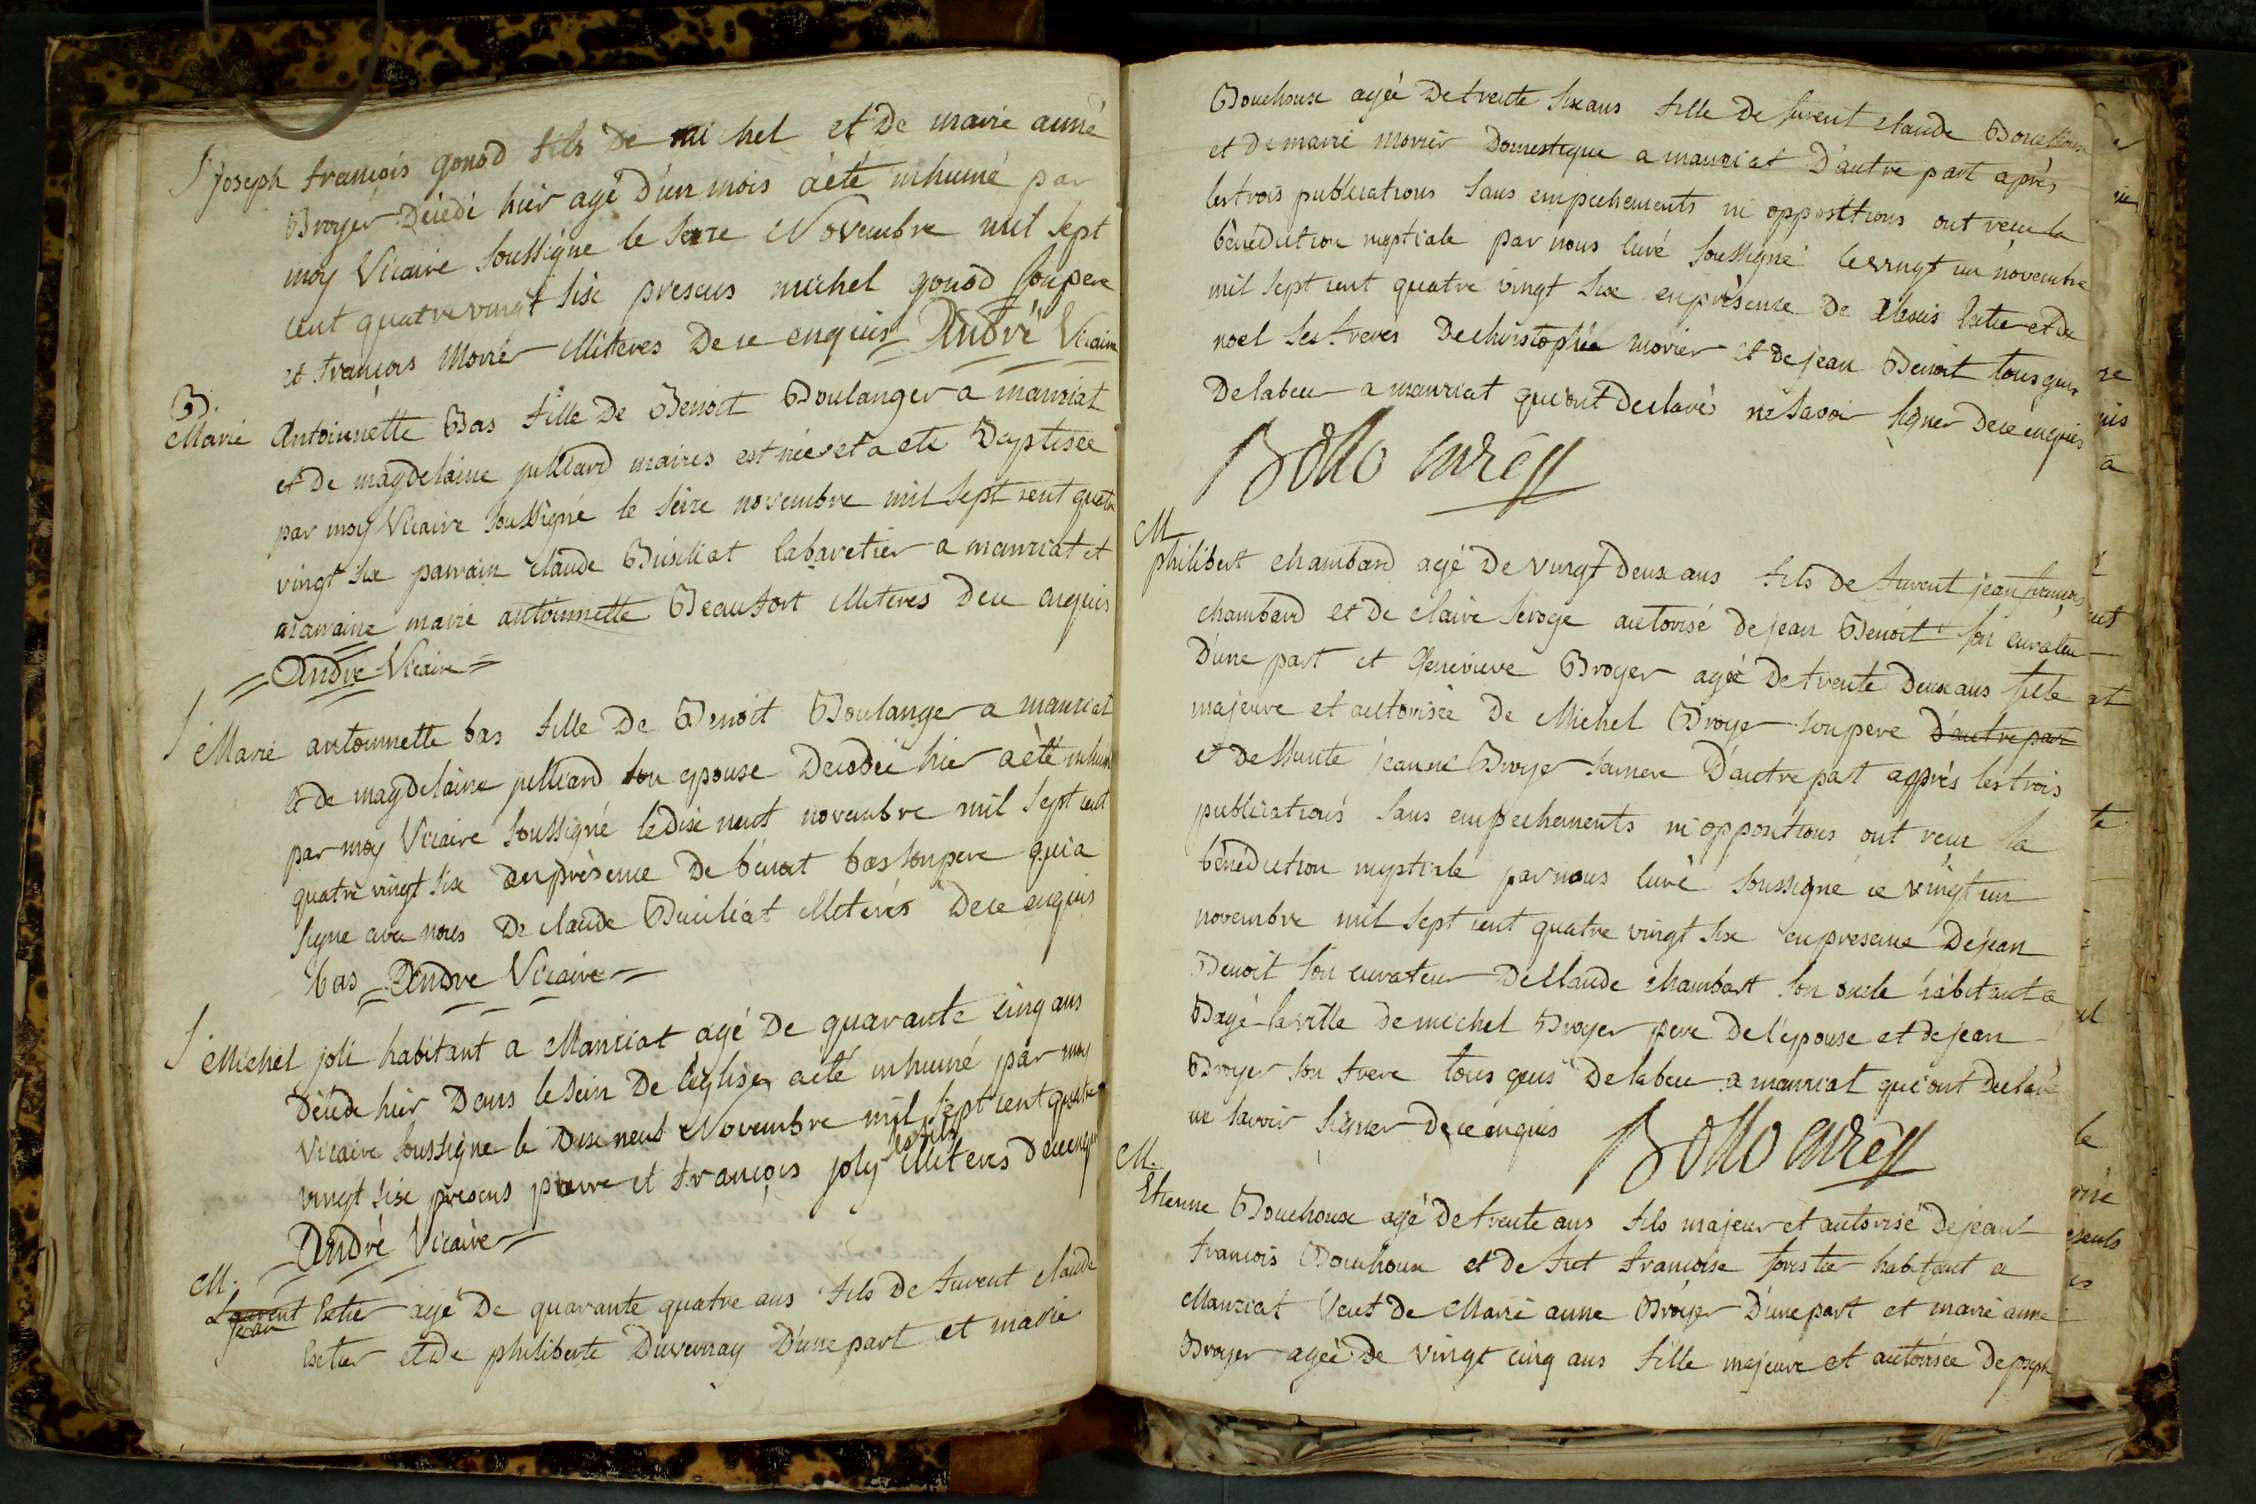 S joseph françois gonod fils de michel et de marie anne
Broyer Décédé hier agé d'un mois a été inhumé par
moy Vicaire soussigné le seize Novembre mil sept
cent quatre vingt six presens michel gonod son pere
et françois Morel illiteres De ce enquis André Vicaire
B.
Marie Antoinette Bas fille De Benoit Boulanger a manziat
et De magdelaine juillard mariés est née et a ete Baptisée
par moy Vicaire soussigné le seize novembre mil sept cent quatre
vingt six parrain claude Buiciliat Cabaretier a manziat et
marraine marie antoinnette Beaufort illiteres De ce enquis
André Vicaire
S Marie antoinnette bas fille De Benoit Boulanger a manziat
et de magdelaine juillard son epouse Decedée hier a été inhumé
par moy Vicaire soussigné le dix neuf novembre mil sept cent
quatre vingt six en présence De benoit bas son pere qui a
signe avec nous De claude Buiciliat illiterés De ce enquis
bas André Vicaire
S Michel joli habitant a Manziat agé De quarante cinq ans
Décédé hier Dans le sein De l'eglise a eté inhumé par moy
Vicaire soussigné le Dix neuf Novembre mil sept cent quatre
ses fils
vingt six presens pierre et françois joly illiteres de ce enquis
André Vicaire
M.
Laurent Catier agé De quarante quatre ans fils de Furent claude
jean
Catier et de philiberte Duvernay D'une part et marie
Bouchoux agée De trente six ans fille De furent claude Bouchoux
et De marie Morier Domestique a manziat D'autre part après
les trois publications sans empechements ni oppositions ont recu la
bénédiction nuptiale par nous curé soussigné le vingt un novembre
mil sept cent quatre vingt six en présence De Alexis Catier et de
noel ses freres De christophe morier et de jean Benoit tous gens
De labeur a manziat qui ont declarés ne savoir signer De ce enquis
Bollo curé
M
philibert chambard agé De vingt Deux ans fils de furent jean françois
chambard et de claire feroge autorisé de jean Benoit son curateur
D'une part et Genevieve Broyer agée De trente Deux ans fille
majeure et autorisée De Michel Broyer son pere d'autre part
et Deffunte jeanne Broyer sa mere D'autre part apprés les trois
publications sans empechements ni oppositions ont recu la
bénédiction nuptiale par nous curé soussigné ce vingt un
novembre mil sept cent quatre vingt six en presence De jean
Benoit son curateur De Claude chambart son oncle habitant a
Bagé-la ville de michel Broyer pere De l'epouse et de jean
Broyer son frere tous gens De labeur a manziat qui ont declaré
ne savoir signer de ce enquis Bollo curé
M.
Etienne Bouchoux agé De trente ans fils majeur et autorisé De jean
francois Bouchoux et de fut françoise forestier habitant a
Manziat Veuf de Marie anne Broyer D'une part et marie anne
Broyer agée De vingt cinq ans fille majeure et autorisée De joseph